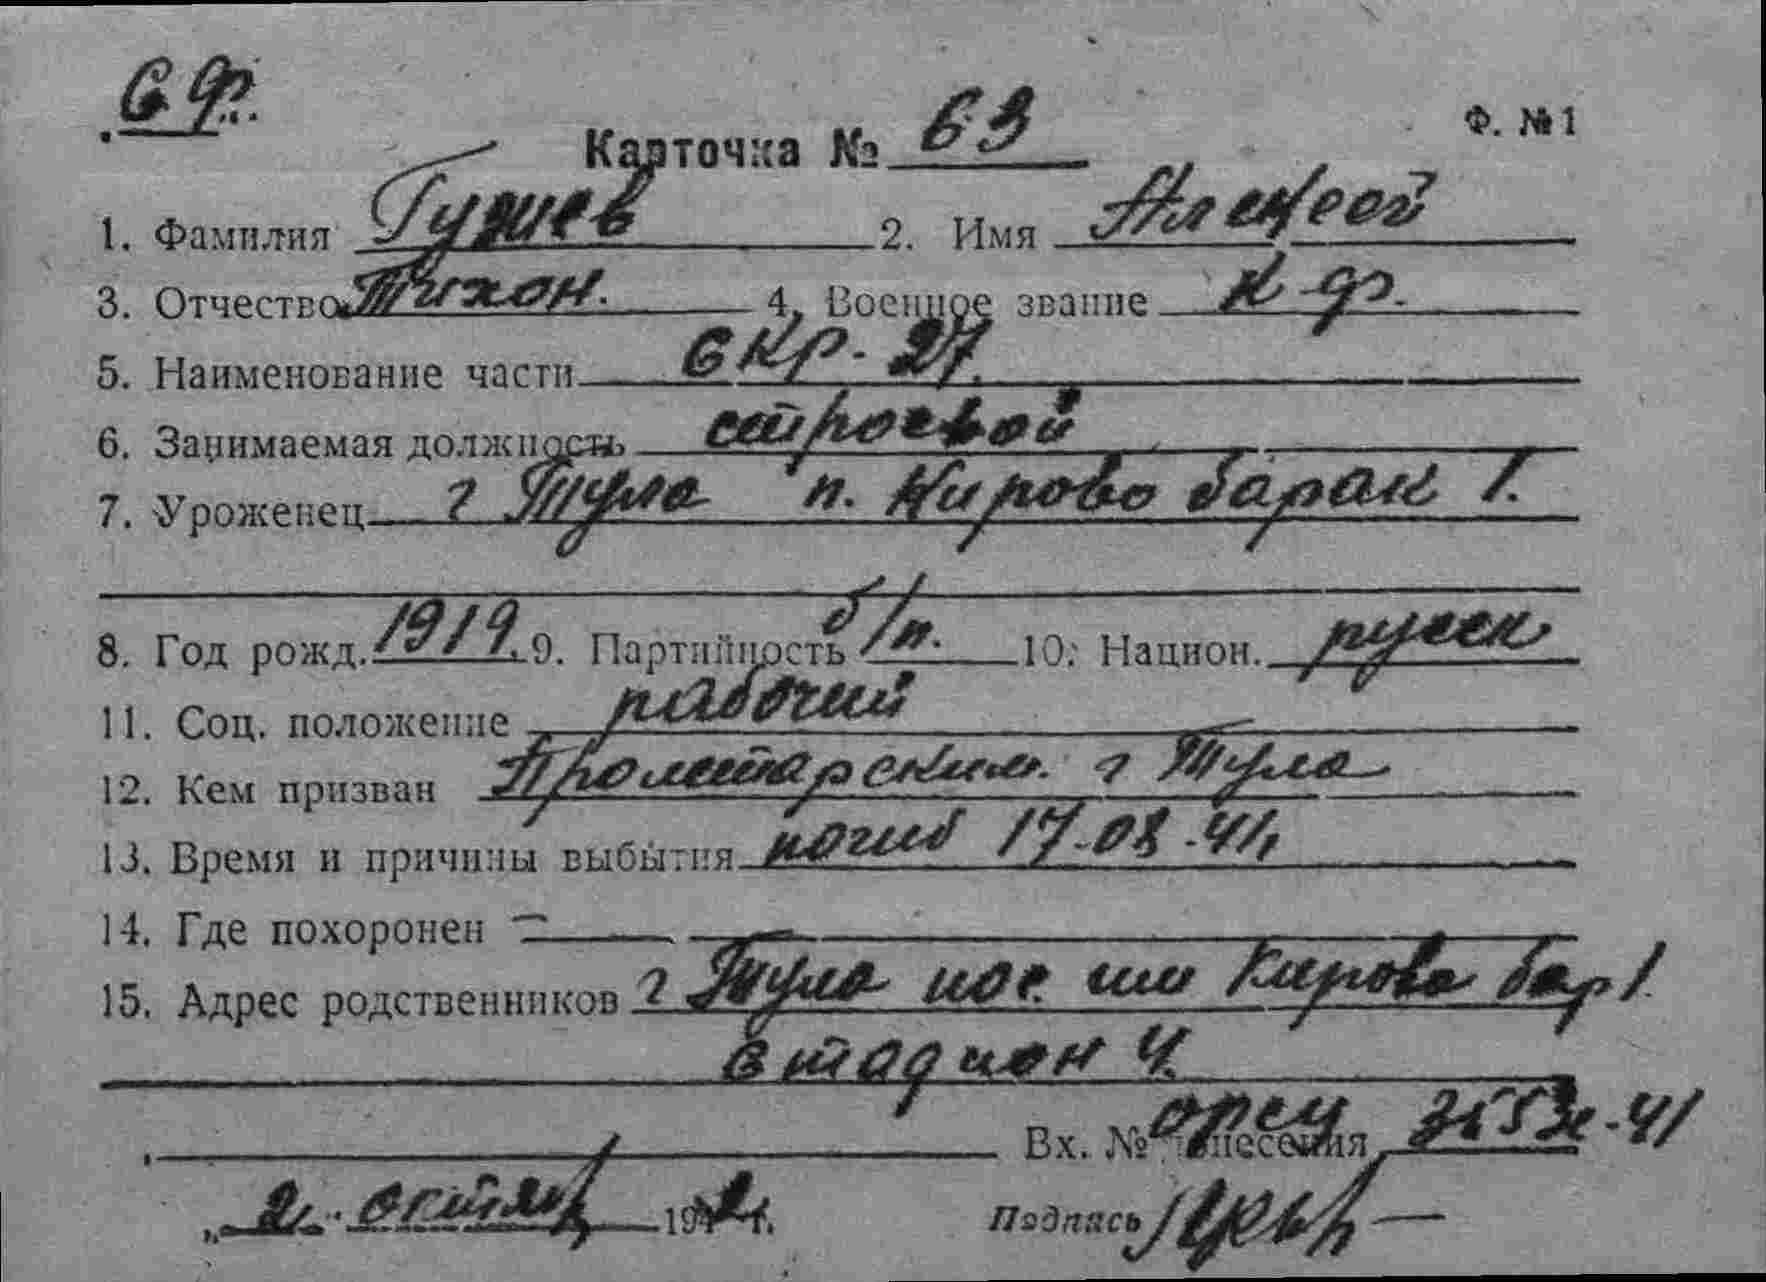 С ф.
Ф. № 1
Карточка № 63
1. Фамилия Гужиев 2. Имя Алексей
3. Отчество Тихон. 4. Военное звание К-ф.
5. Наименование части СКР-27.
6. Занимаемая должность строевой
7. Уроженец г Тула п. Кирово барак 1.
8. Год рожд. 1919. 9. Партийность б/п. 10. Национ. русск
11. Соц. положение рабочий
12. Кем призван Пролетарским г Тула
13. Время и причины выбытия погиб 17-08-41
14. Где похоронен —
15. Адрес родственников г Тула пос. им Кирова бар 1.
стадион 4.
Вх. № донесения -41
"2" октяб 1942 г. Подпись